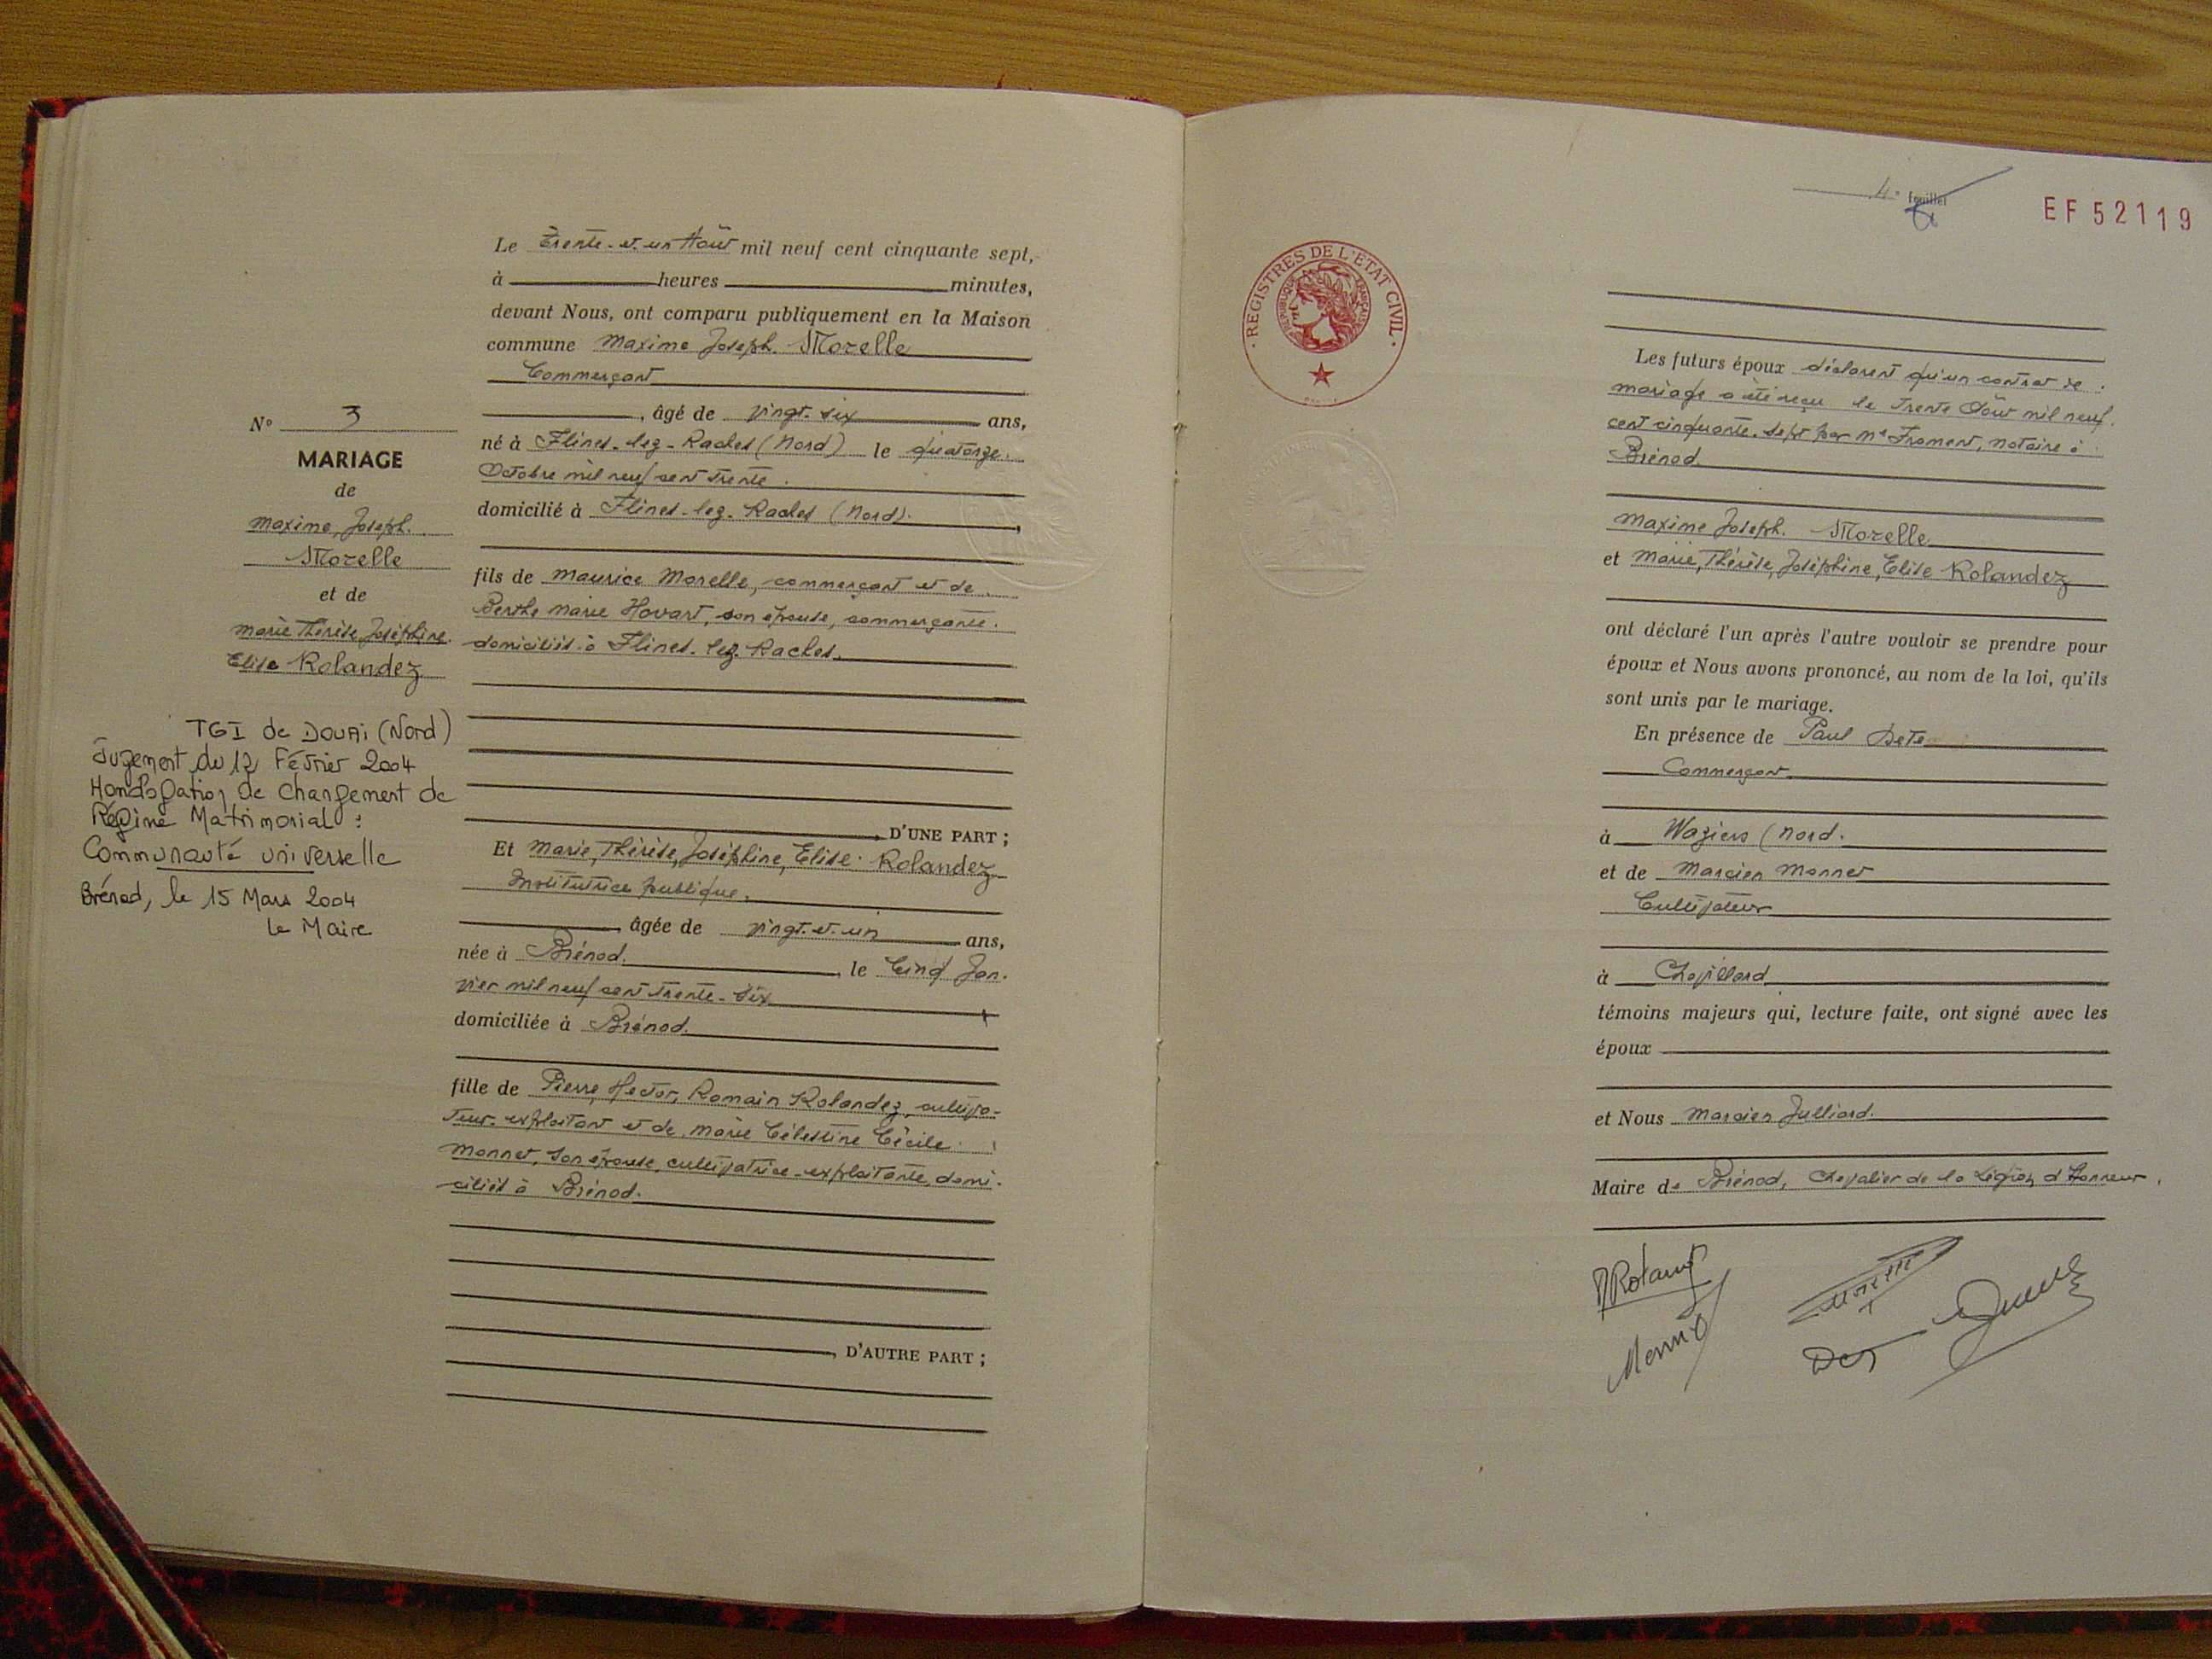 N° 3
MARIAGE
de
Maxime, Joseph.
Morelle
et de
Marie Thérèse Joséphine.
Elise Rolandez
TGI de DOUAi (Nord)
Jugement du 12 Février 2004
Homologation de changement de
Régime Matrimonial :
Communauté universelle
Brénod, le 15 Mars 2004
Le Maire
Le Trente-et-un Août mil neuf cent cinquante sept,
à heures minutes,
devant Nous, ont comparu publiquement en la Maison
commune Maxime Joseph. Morelle
Commerçant
, âgé de vingt-six ans,
né à Flines-lez-Raches (Nord) le quatorze
Octobre mil neuf cent trente.
domicilié à Flines-lez-Raches (Nord).
fils de Maurice Morelle, commerçant et de
Berthe Marie Hovart, son épouse, commerçante.
domiciliés à Flines-lez-Raches.
D'UNE PART ;
Et Marie, Thérèse, Joséphine, Elise. Rolandez
Institutrice publique.
âgée de vingt-et-un ans,
née à Brénod. , le Cinq Jan-
vier mil neuf cent trente-six
domiciliée à Brénod.
fille de Pierre, Hector, Romain Rolandez, cultiva-
teur-exploitant et de Marie Célestine Cécile
Monnet, son épouse, cultivatrice-exploitante, domi-
ciliés à Brénod.
, D'AUTRE PART ;
4e feuillet
EF 52119
REGISTRES DE L'ETAT CIVIL
REPUBLIQUE FRANÇAISE
Les futurs époux déclarent qu'un contrat de
mariage a été reçu le trente Août mil neuf
cent cinquante-sept par Me Froment, notaire à
Brénod.
Maxime Joseph. Morelle
et Marie, Thérèse, Joséphine, Elise Rolandez
ont déclaré l'un après l'autre vouloir se prendre pour
époux et Nous avons prononcé, au nom de la loi, qu'ils
sont unis par le mariage.
En présence de Paul
Commerçant.
à Waziers (Nord.
et de Marcien Monnet
Cultivateur
à Chevillard
témoins majeurs qui, lecture faite, ont signé avec les
époux
et Nous Marcien Julliard.
Maire de Brénod, Chevalier de la Légion d'Honneur.